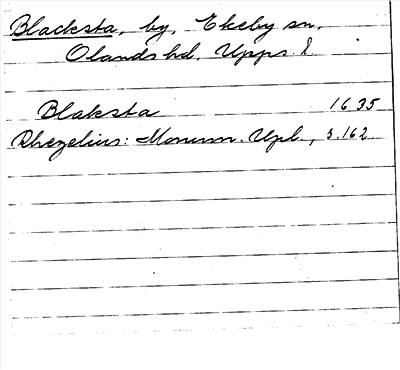 Blacksta, by, Ekeby sn,
Olands hd, Upps. l
Blaksta 1635
Rhezelius: Monum. Upl., s. 162